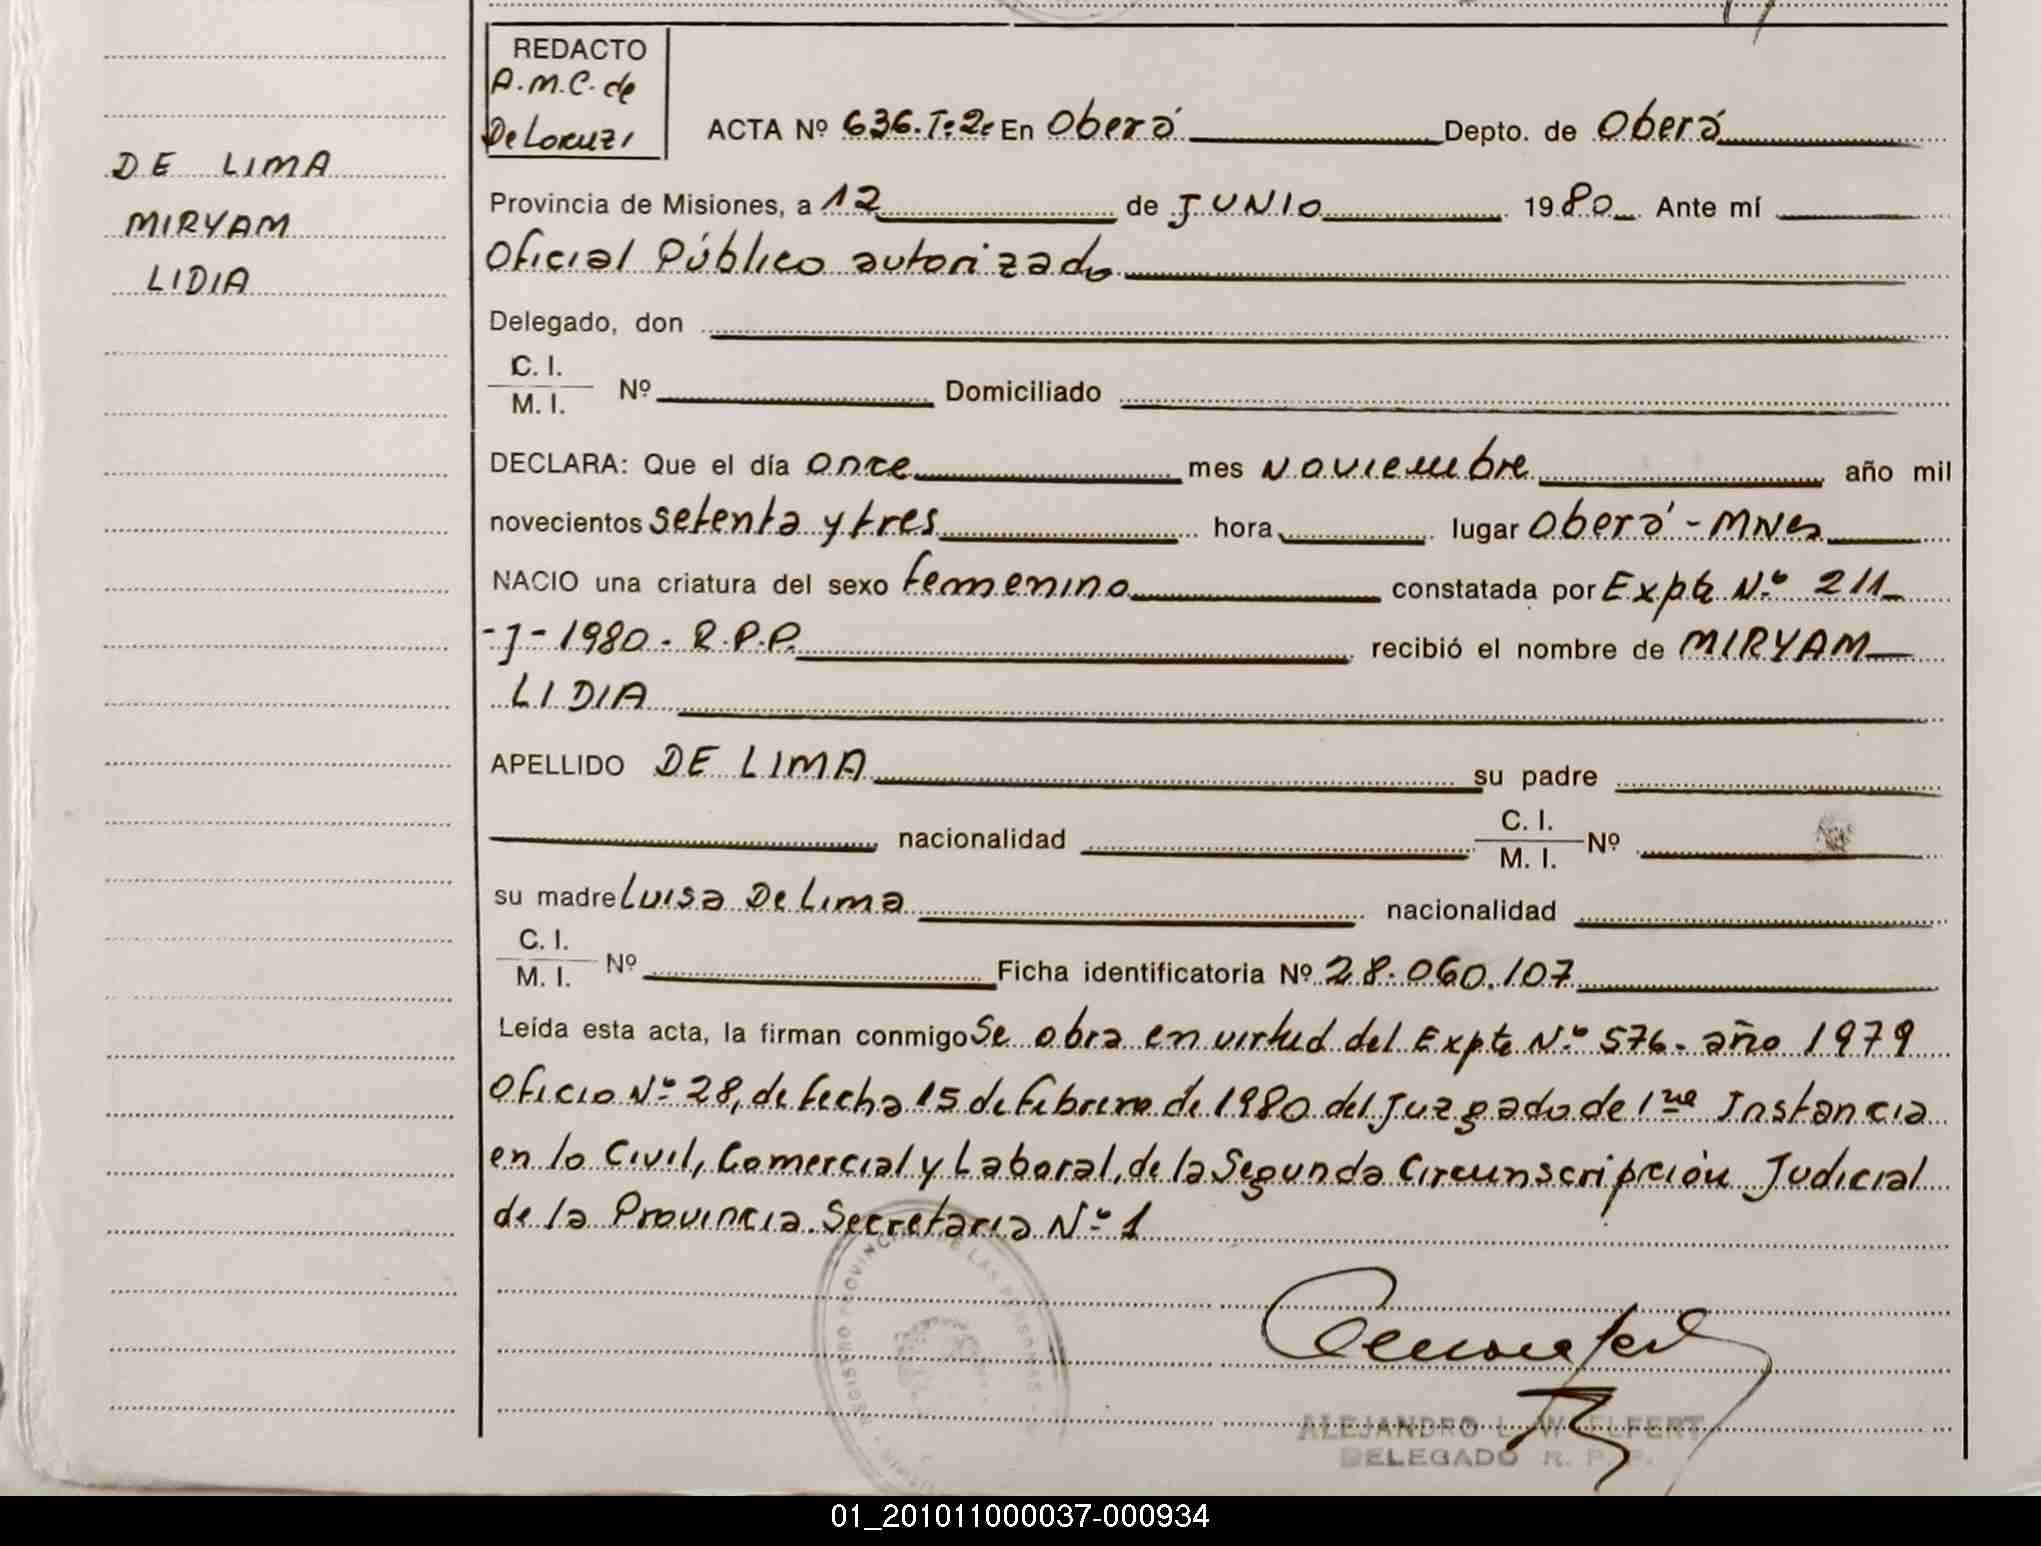 REDACTO
A.M.C. de
De Loruzi
ACTA Nº 636.T:2: En Oberá Depto. de Oberá
DE LIMA
MIRYAM
LIDIA
Provincia de Misiones, a 12 de JUNIO 1980 Ante mí
Oficial Público autorizado
Delegado, don
C. I.
M. I. Nº Domiciliado
DECLARA: Que el día once mes Noviembre año mil
novecientos setenta y tres hora lugar Oberá - MNes
NACIO una criatura del sexo femenino constatada por Expte Nº 211
-J- 1980 - R.P.P. recibió el nombre de MIRYAM
LIDIA
APELLIDO DE LIMA su padre
nacionalidad C. I.
M. I. Nº
su madre Luisa De Lima nacionalidad
C. I.
M. I. Nº Ficha identificatoria Nº 28.060.107
Leída esta acta, la firman conmigo Se obra en virtud del Expte Nº 576 - año 1979
Oficio Nº 28, de fecha 15 de febrero de 1980 del Juzgado de 1ra Instancia
en lo Civil, Comercial y Laboral, de la Segunda Circunscripción Judicial
de la Provincia. Secretaria Nº 1
REGISTRO PROVINCIAL DE LAS PERSONAS
ALEJANDRO L. WELFERT
DELEGADO R. P. P.
01_201011000037-000934